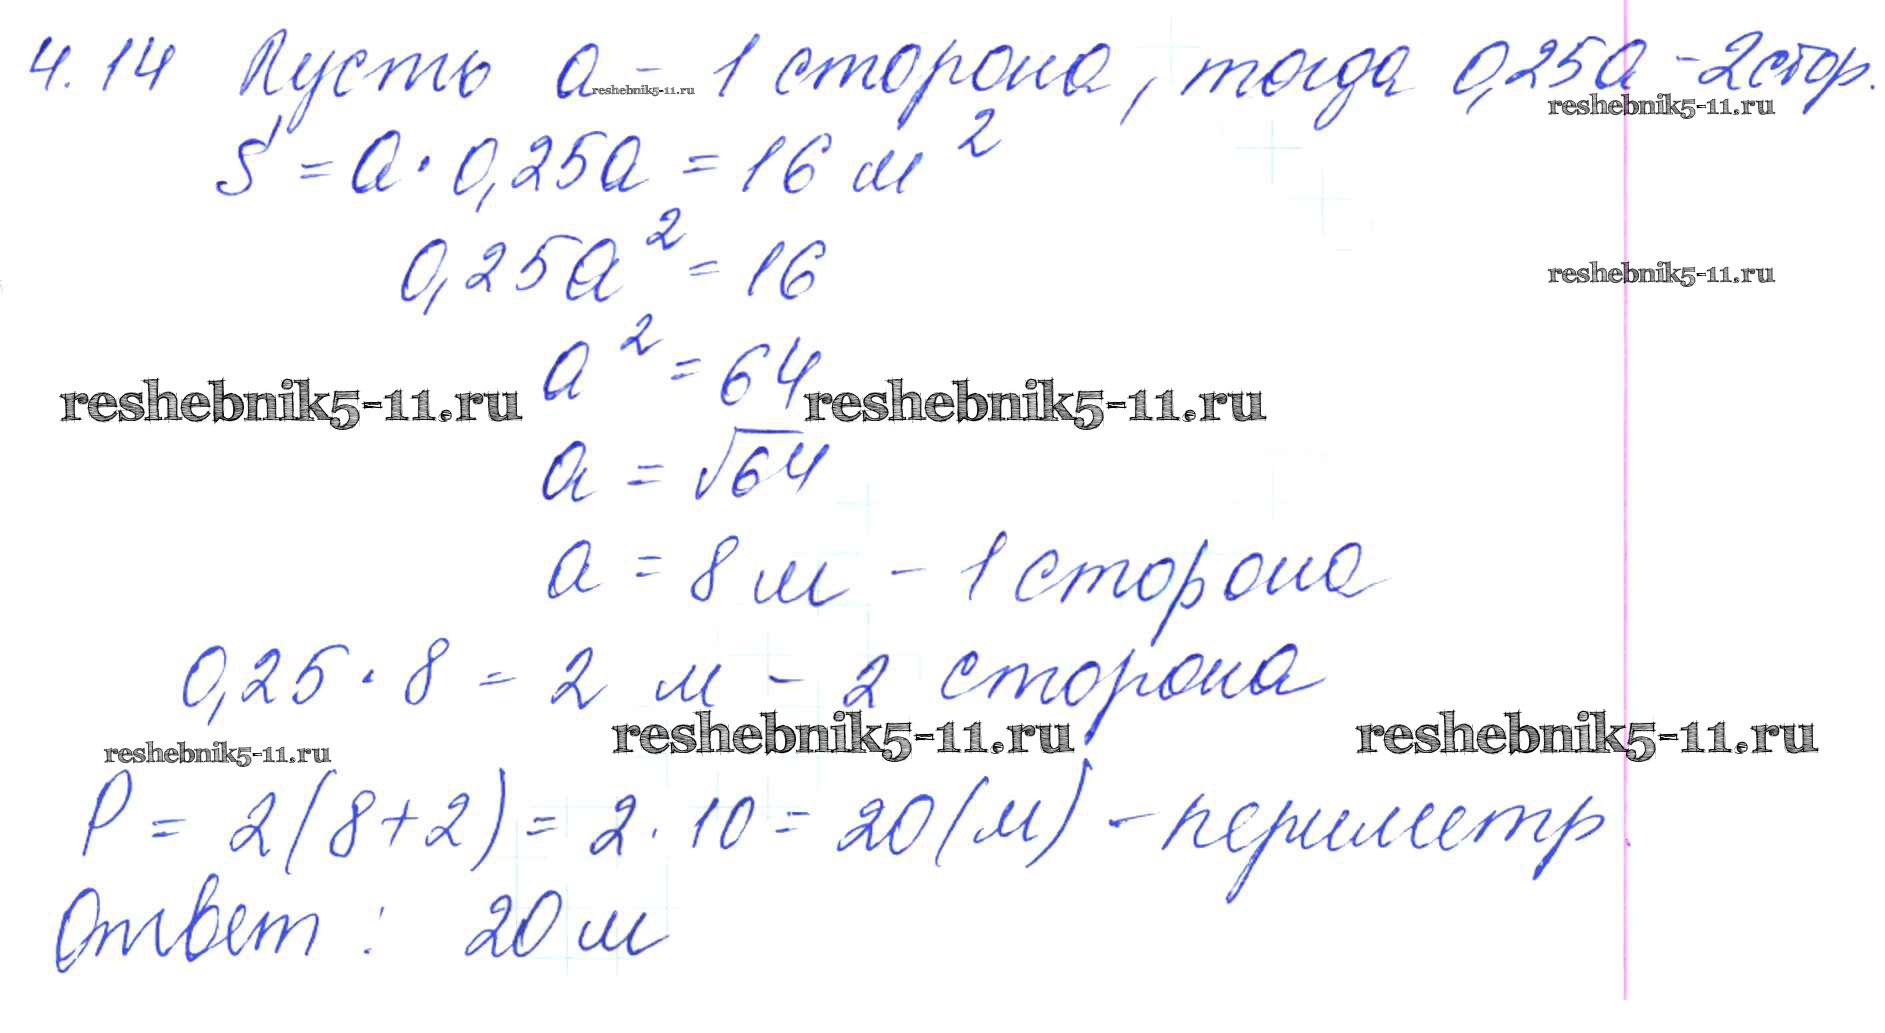 4.14 Пусть a - 1 сторона, тогда 0,25a - 2 стор.
reshebnik5-11.ru
reshebnik5-11.ru
S = a · 0,25a = 16 м²
0,25a² = 16
reshebnik5-11.ru
a² = 64
reshebnik5-11.ru reshebnik5-11.ru
a = √64
a = 8 м - 1 сторона
0,25 · 8 = 2 м - 2 сторона
reshebnik5-11.ru reshebnik5-11.ru
reshebnik5-11.ru
P = 2(8+2) = 2 · 10 = 20 (м) - периметр
Ответ: 20 м